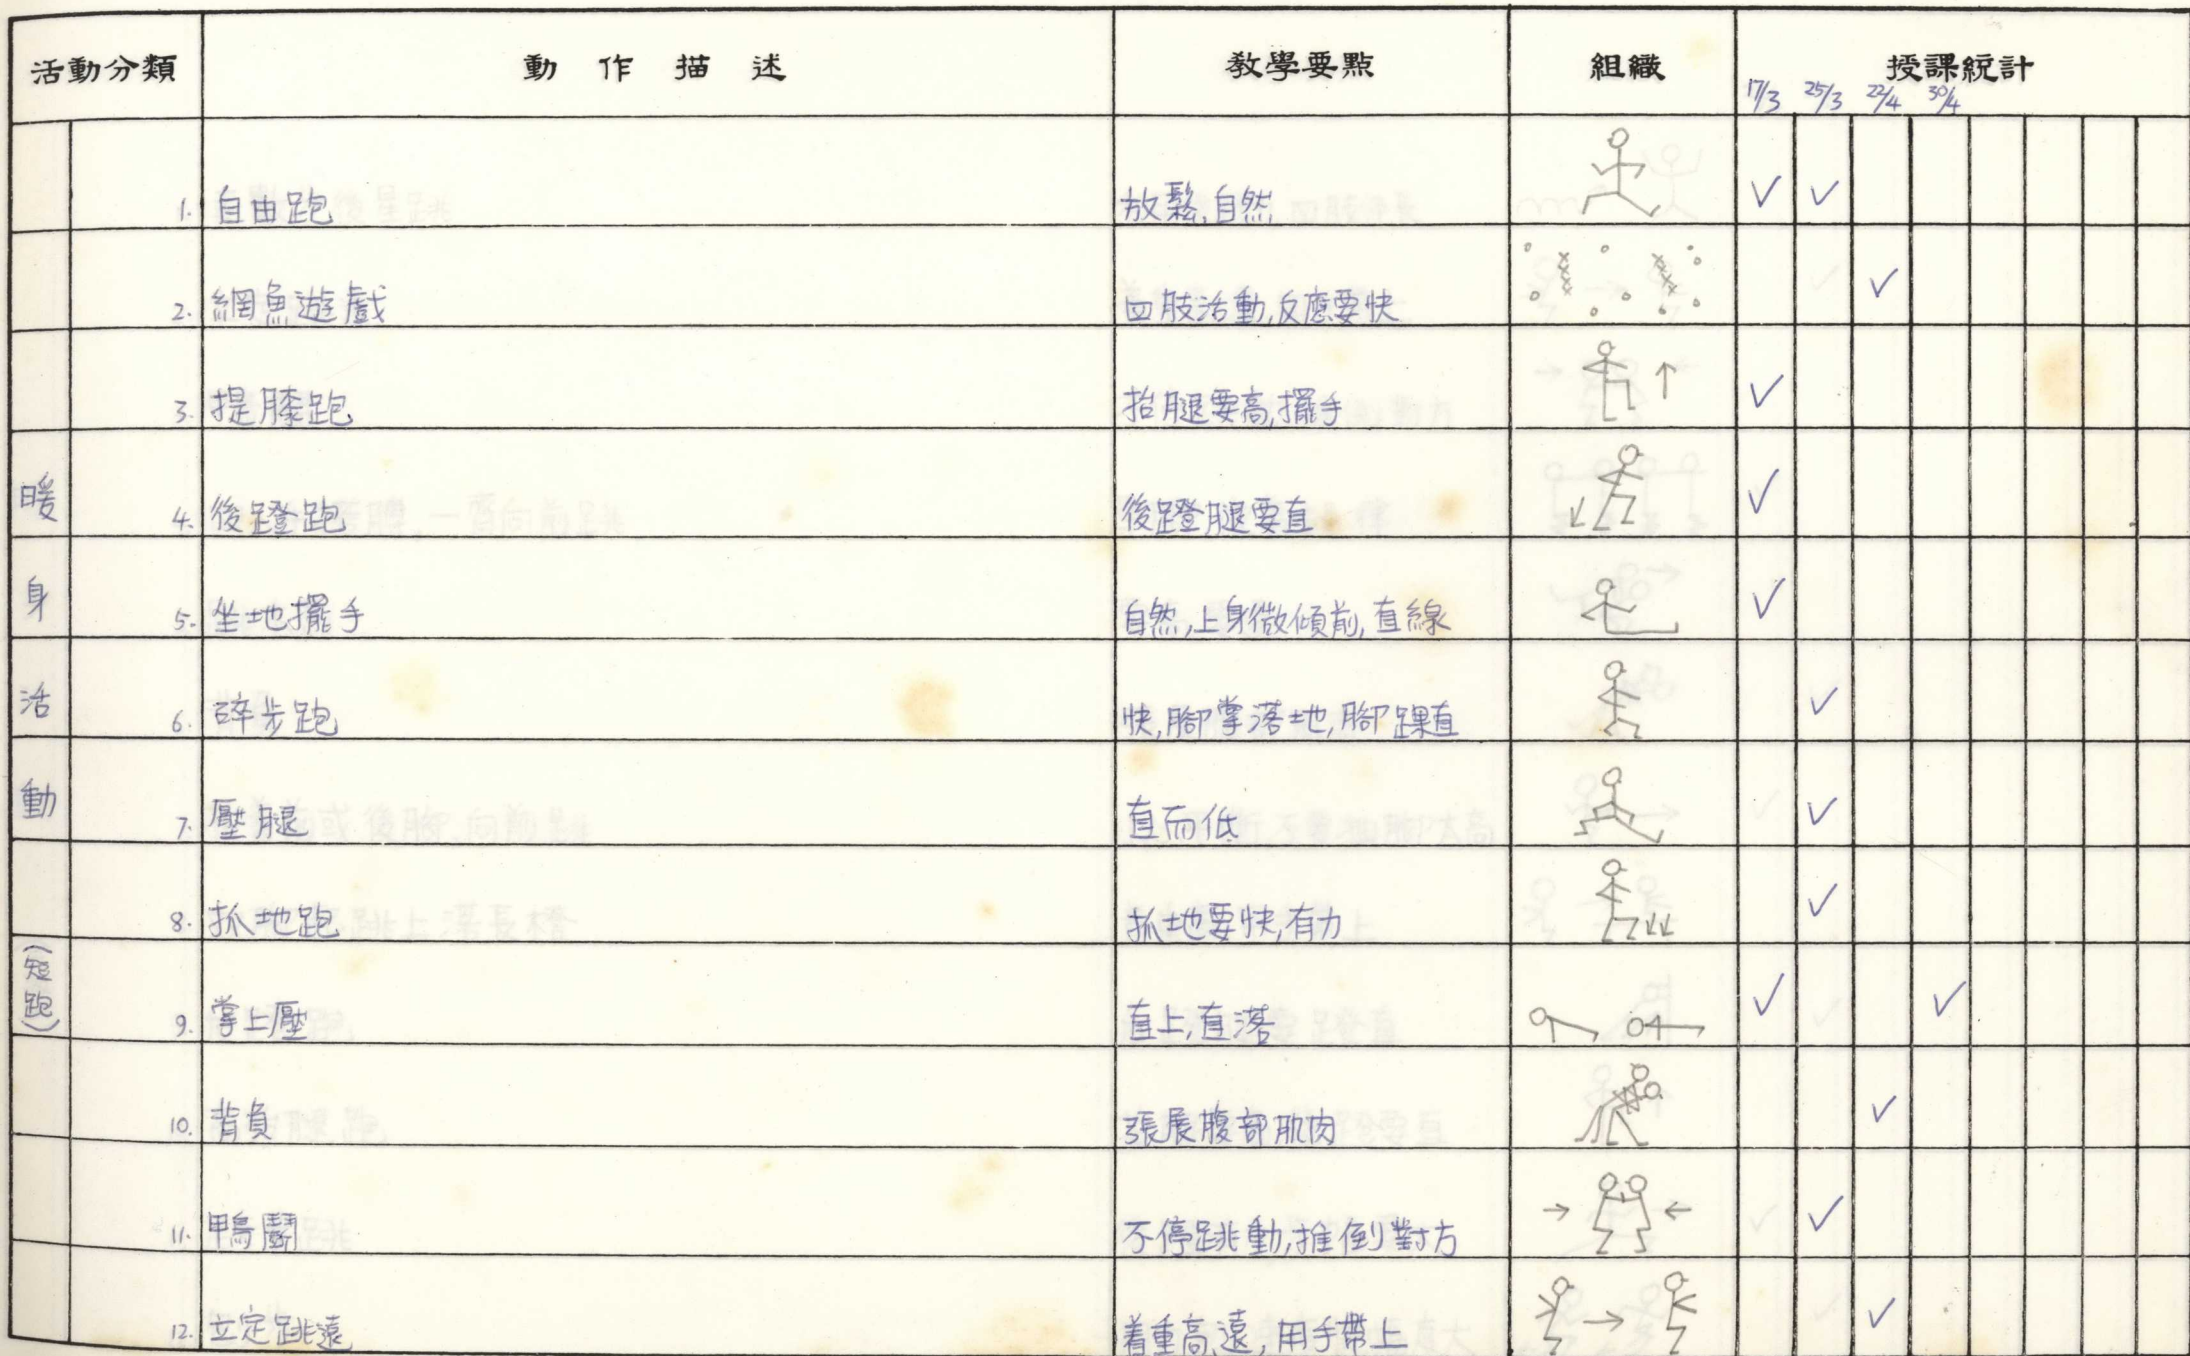 活動分類 動作描述 教學要點 組織 授課統計
17/3 25/3 22/4 30/4
暖身活動(短跑)
1. 自由跑 放鬆,自然 ✓ ✓
2. 網魚遊戲 四肢活動,反應要快 ✓
3. 提膝跑 抬腿要高,擺手 ✓
4. 後蹬跑 後蹬腿要直 ✓
5. 坐地擺手 自然,上身微傾前,直線 ✓
6. 碎步跑 快,腳掌落地,腳踝直 ✓
7. 壓腿 直而低 ✓
8. 抓地跑 抓地要快,有力 ✓
9. 掌上壓 直上,直落 ✓ ✓
10. 背負 張展腹部肌肉 ✓
11. 鴨鬭 不停跳動,推倒對方 ✓
12. 立定跳遠 着重高,遠,用手帶上 ✓